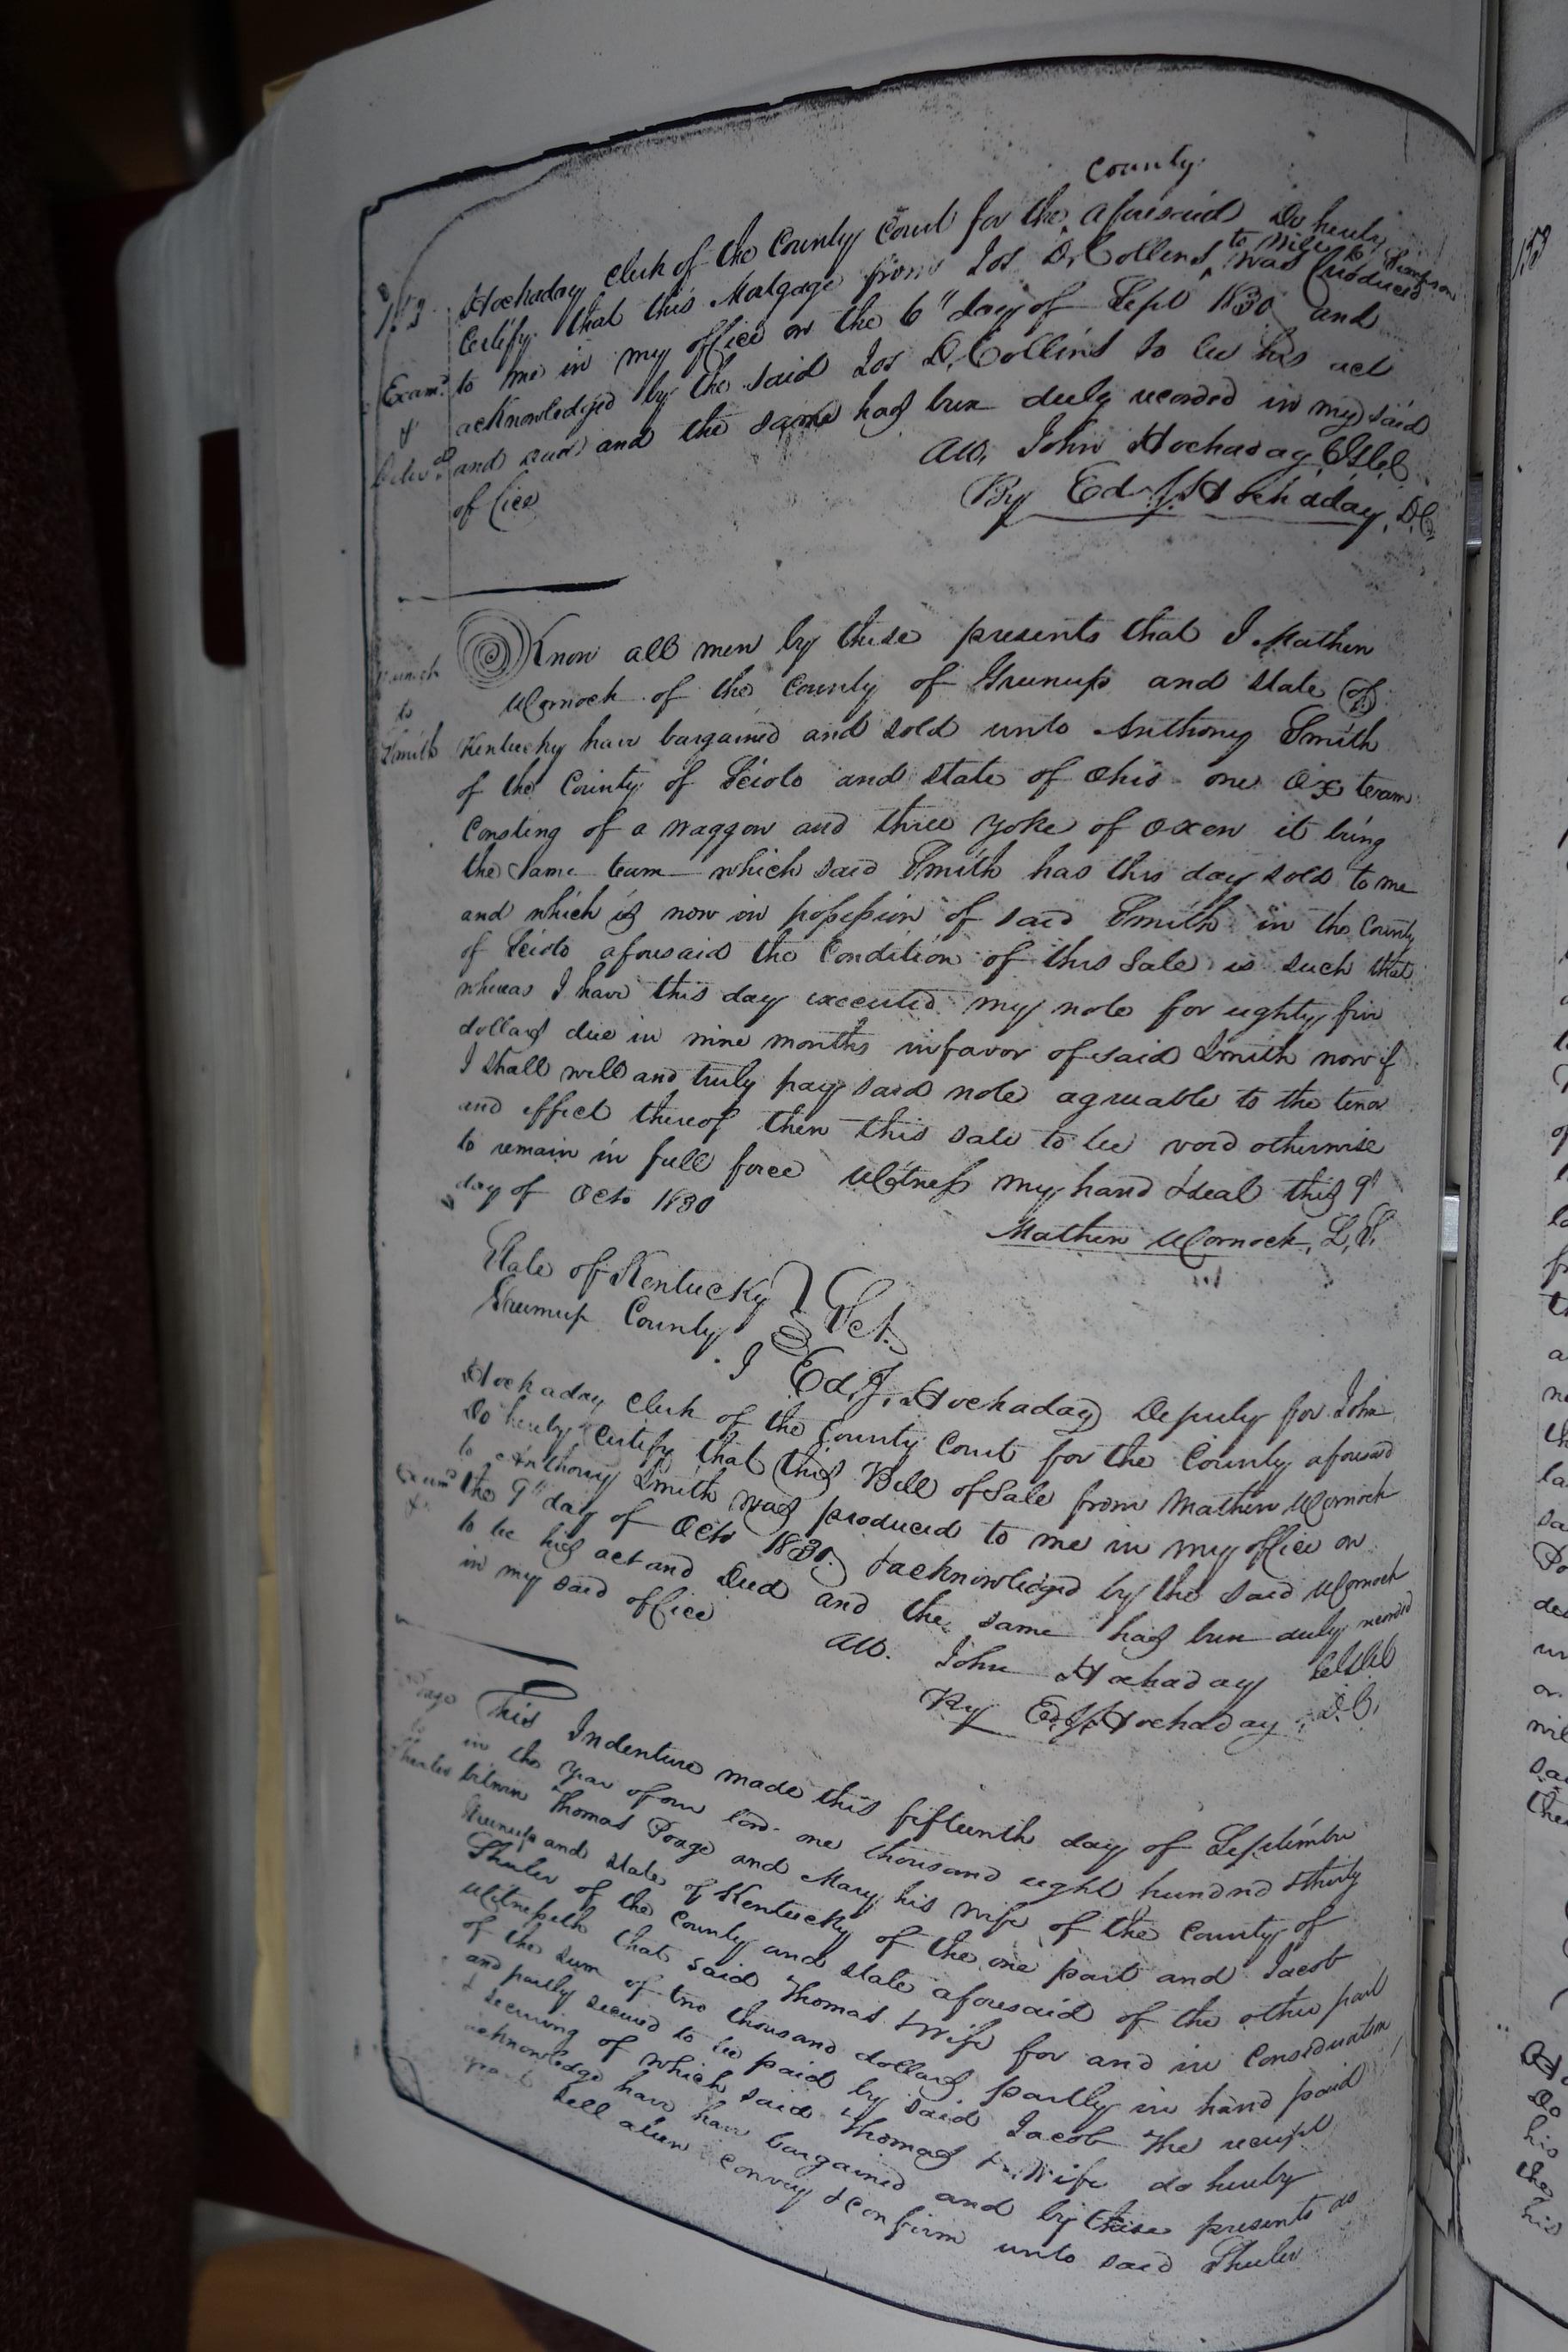 County
Hockaday clerk of the County Court for the aforesaid Do hereby
Certify that this Matgage from Jos D. Collins to was produced
to me in my office on the 6" day of Sept 1830 and
acknowledged by the said Jos D. Collins to be his act
and and the same has been duly recorded in my said
office
Att. John Hockaday
By Ed. J. Hockaday, D.C.
Examd
&
to
Smith
Know all men by these presents that I Mathew
Wornock of the County of Greenup and State of
Kentucky have bargained and sold unto Anthony Smith
of the County of Scioto and State of Ohio one Ox team
Consting of a waggon and three yoke of oxen it being
the same team which said Smith has this day sold to me
and which is now in possession of said Smith in the County
of Scioto aforesaid the Condition of this Sale is such that
whereas I have this day executed my note for eighty five
dollars due in nine months in favor of said Smith now if
I shall well and truly pay said note agreeable to the tenor
and effect thereof then this sale to be void otherwise
to remain in full force Witness my hand & seal this 9th
day of Octo 1830
Mathew Wornock, L,S.
State of Kentucky
Greenup County } Sct.
I Ed. J. Hockaday Deputy for John
Hockaday Clerk of the County Court for the County aforesaid
Do hereby Certify that this Bill of Sale from Mathew Wornock
to Anthony Smith was produced to me in my office on
the 9th day of Octo 1830. & acknowledged by the said Wornock
to be his act and Deed and the same has been duly recorded
in my said office
Att. John Hockaday
By Ed. J. Hockaday, D.C.
Examd
&
Poage
to
Shuler
This Indenture made this fifteenth day of September
in the year of our lord one thousand eight hundred & thirty
between Thomas Poage and Mary his wife of the County of
Greenup and State of Kentucky of the one part and Jacob
Shuler of the County and State aforesaid of the other part
Witnesseth that said Thomas & Wife for and in Consideration
of the sum of two thousand dollars partly in hand paid
and partly secured to be paid by said Jacob the receipt
& securing of which said Thomas & Wife do hereby
acknowledge have have bargained and by these presents do
grant sell alien convey & confirm unto said Shuler